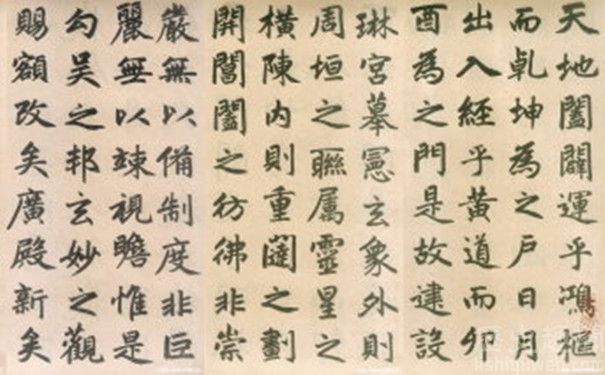 天地闔闢運乎鴻樞
而乹坤為之戶日月
出入經乎黃道而卯
酉為之門是故建設
琳宮摹憲玄象外則
周垣之聮属靈星之
橫陳内則重闥之劃
開閶闔之彷彿非崇
嚴無以備制度非巨
麗無以竦視瞻惟是
勾吴之邦玄妙之觀
賜額改矣廣殿新矣